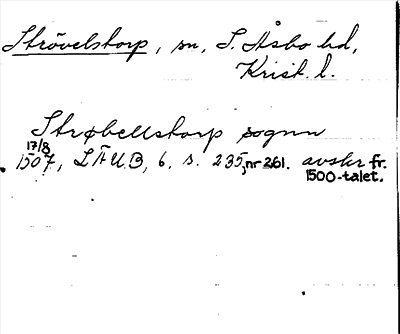 Strövelstorp, sn, S. Åsbo hd,
Krist. l.
Strøbelstorp sognn
17/8
1507, LÄUB, 6, s. 235, nr 261. avskr fr.
1500-talet.